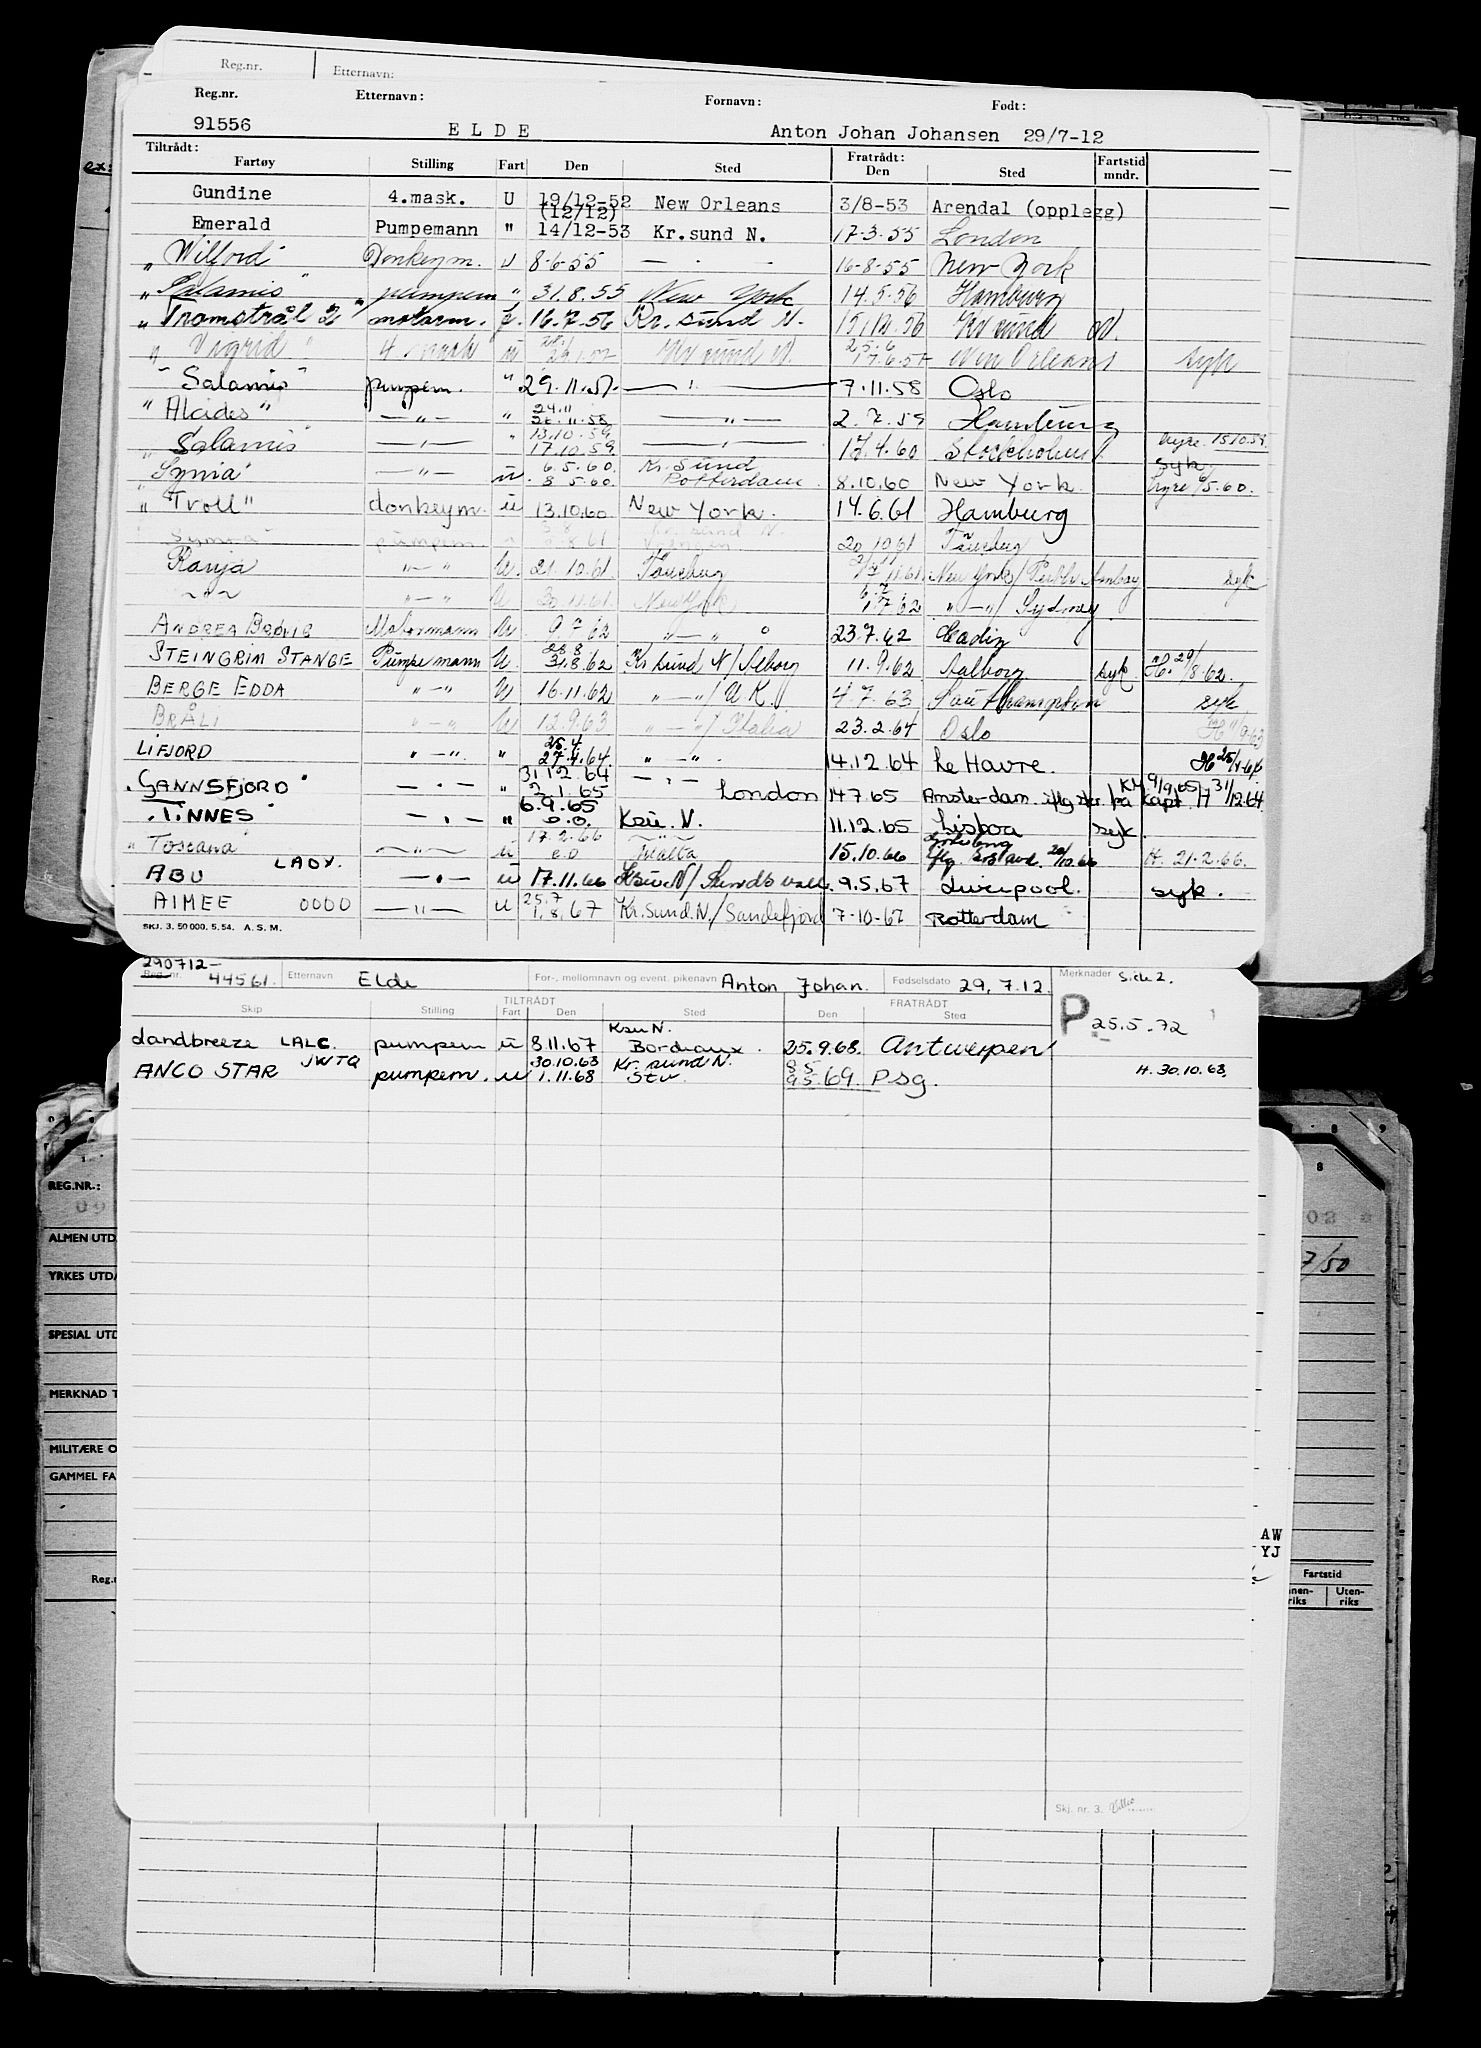 Reg.nr. Etternavn:
Reg.nr. Etternavn: Fornavn: Født:
91556 E L D E Anton Johan Johansen 29/7-12
Tiltrådt: Fratrådt: Fartstid
Fartøy Stilling Fart Den Sted Den Sted mndr.
Gundine 4.mask. U 19/12-52 New Orleans 3/8-53 Arendal (opplegg)
(12/12)
Emerald Pumpemann " 14/12-53 Kr.sund N. 17-3-55 London
"Wilford" Donkeym. U 8-6-55 — - - 16-8-55 New York
"Salamis" pumpem " 31.8.55 New York 14.5.56 Hamburg
"Tromstrål 2" motorm. 16.7.56 Kr. sund N. 15.12.56 Kr sund N.
"Vigrid" 4 mask U Kr sund N. 25.6 17.6.57 New Orleans syk
"Salamis" pumpem. " 29.11.57 — " — 7.11.58 Oslo
"Alcides" — " — " 24.11 — " — 2.7.59 Hamburg
"Salamis" — " — " 13.10.59 17.10.59 — " — 17.4.60 Stockholm hyre 15.10.59
— " — u. 6.5.60. 8 5.60. Kr. Sund Rotterdam. 8.10.60 New York. syk hyre 6/5.60.
"Troll" donkeym. u 13.10.60. New York. 14.6.61 Hamburg
pumpem 20/10 61
Ranja — " — U. 21.10.61 11.61 New York/Perth Amboy syk
— " — — " — U 30.11.61 New York 7 62 " — "/ Sydney
ANDREA BRØVIG Motormann U 9 7 62 " — " 23.7.62 Cadiz
STEINGRIM STANGE Pumpemann U. 28 8 31.8.62 Kr sund N/Ålborg 11.9.62 Aalborg syk H. 29/8.62.
BERGE EDDA " — " U 16.11.62 " — "/ U.K. 4.7.63 Southampton syk
BRÅLI " — " U 12.9.63 " — "/ Italia 23.2.64 Oslo H 11/9-63
LIFJORD " — " " 25.4. 27.4.64. " — " . 14.12.64 Le Havre. H 25/4-64
"GANNSFJORD" — " — 31.12.64 2.1.65 — " — London 14 7 65 Amsterdam. KM 9/9 65 på Kapt. H 31/12.64
"TINNES — " — " 6.9.65 Ksu. N. 11.12.65 Lisboa syk.
"Toscana — " — u 17.2.66 Malta 15.10.66 Göteborg 20/10.66 H. 21.2.66.
ABU LADY. — " — u 17.11.66 Ksu N/ Sundsvall. 9.5.67 Liverpool. syk.
AIMEE OOOO — " — u 25.7 1.8.67 Kr.Sund.N./Sandefjord 7-10-67 Rotterdam
SKJ. 3. 50 000. 5. 54. A. S. M.
290712-
Reg. nr. 44561. Etternavn Elde For-, mellomnavn og event. pikenavn Anton Johan. Fødselsdato 29.7.12. Merknader Side 2.
TILTRÅDT FRATRÅDT
Skip Stilling Fart Den Sted Den Sted
P 25.5.72
Landbreeze LALC. pumpem u 8.11.67 Ksu N. Bordeaux. 25.9.68. Antwerpen
ANCO STAR JWTQ pumpem. u 30.10.68 1.11.68 Kr. sund N. Stv. 8 5 9 5 69. Psg. H. 30.10.68.
REG.NR.:
ALMEN UTD
YRKES UTDA
SPESIAL UTD
MERKNAD T
MILITÆRE O
GAMMEL FA
Reg.n
8 9
8
02
7/50
AW
YJ
Fartstid
nnen-
riks
Uten-
riks
Skj. nr. 3.